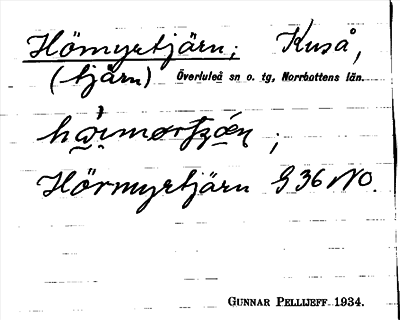 Hömyrtjärn; Kuså,
(tjärn) Överluleå sn o. tg, Norrbottens län.
;
Hörmyrtjärn G 36 NO.
GUNNAR PELLIJEFF 1934.